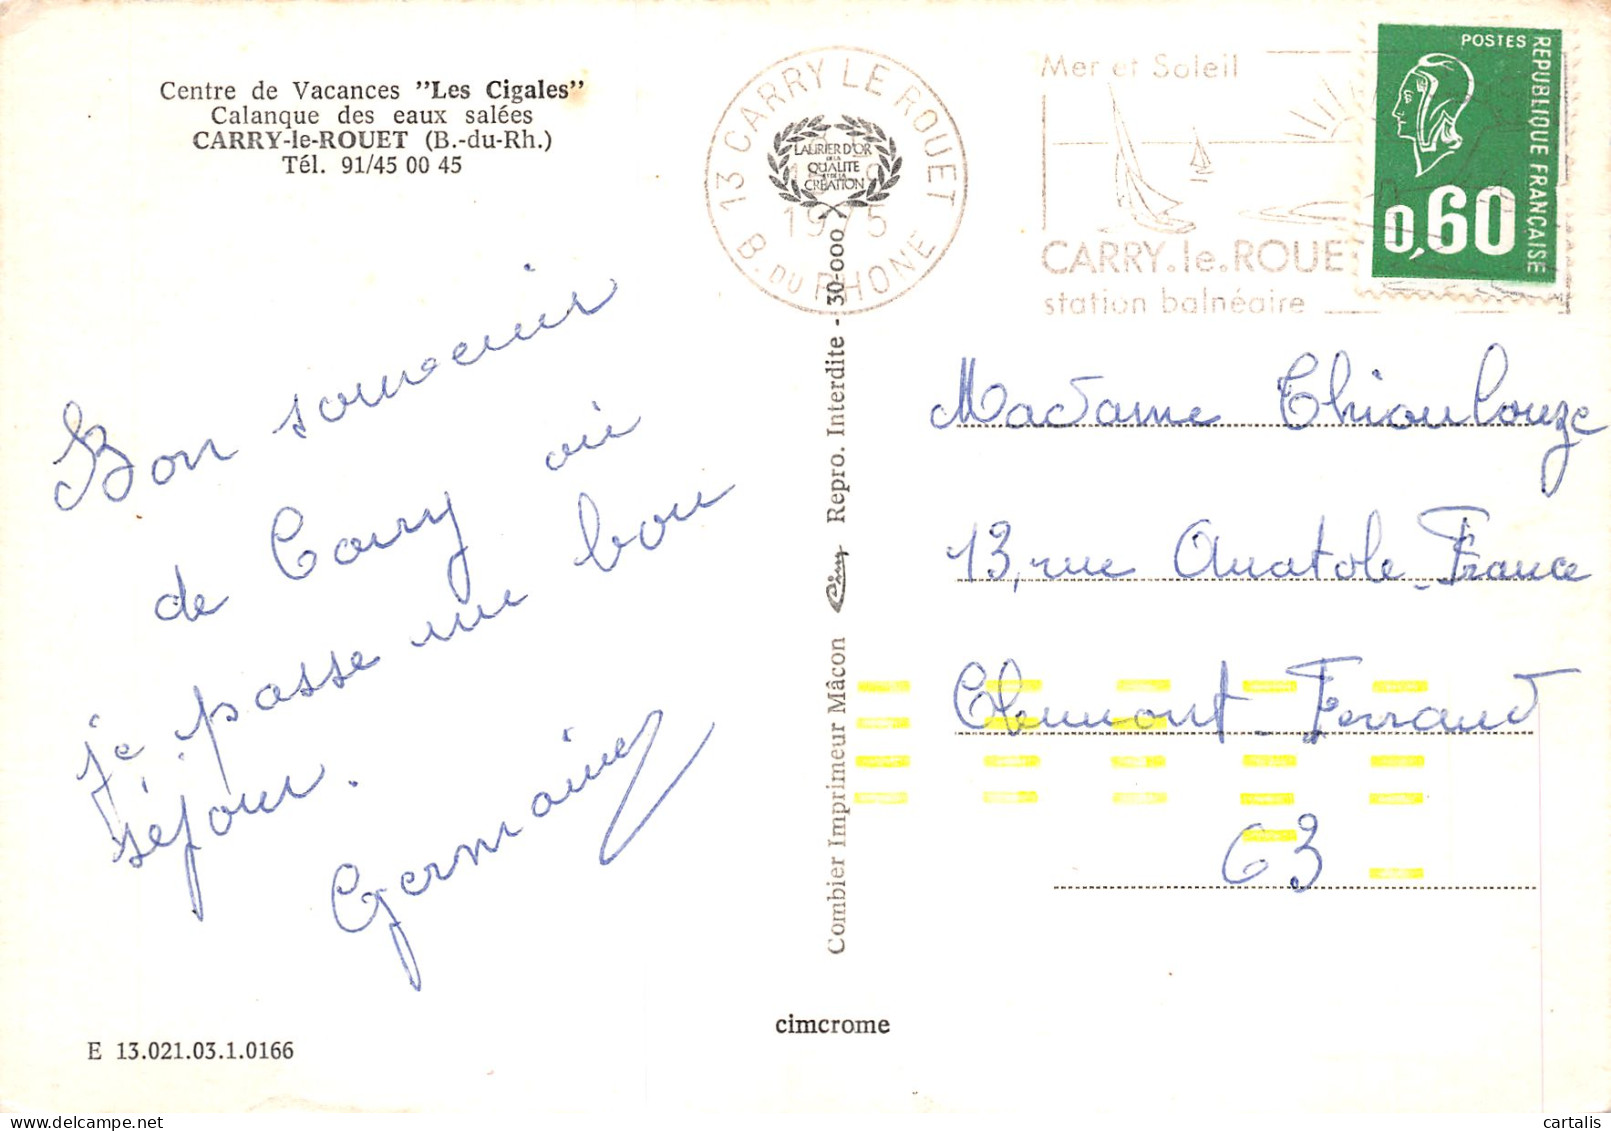 Centre de Vacances "Les Cigales"
Calanque des eaux salées
CARRY-le-ROUET (B.-du-Rh.)
Tél. 91/45 00 45
13 CARRY LE ROUET
1975
B. DU RHONE
LAURIER D'OR
DE LA
QUALITE
ET DE LA
CREATION
Mer et Soleil
CARRY.le.ROUE
station balnéaire
POSTES
REPUBLIQUE FRANÇAISE
0,60
Bon souvenir
de Carry où
je passe un bon
séjour.
Germaine
Madame Thioulouze
13, rue Anatole-France
Clermont-Ferrand
63
Combier Imprimeur Mâcon Cim Repro. Interdite - 30-000
cimcrome
E 13.021.03.1.0166